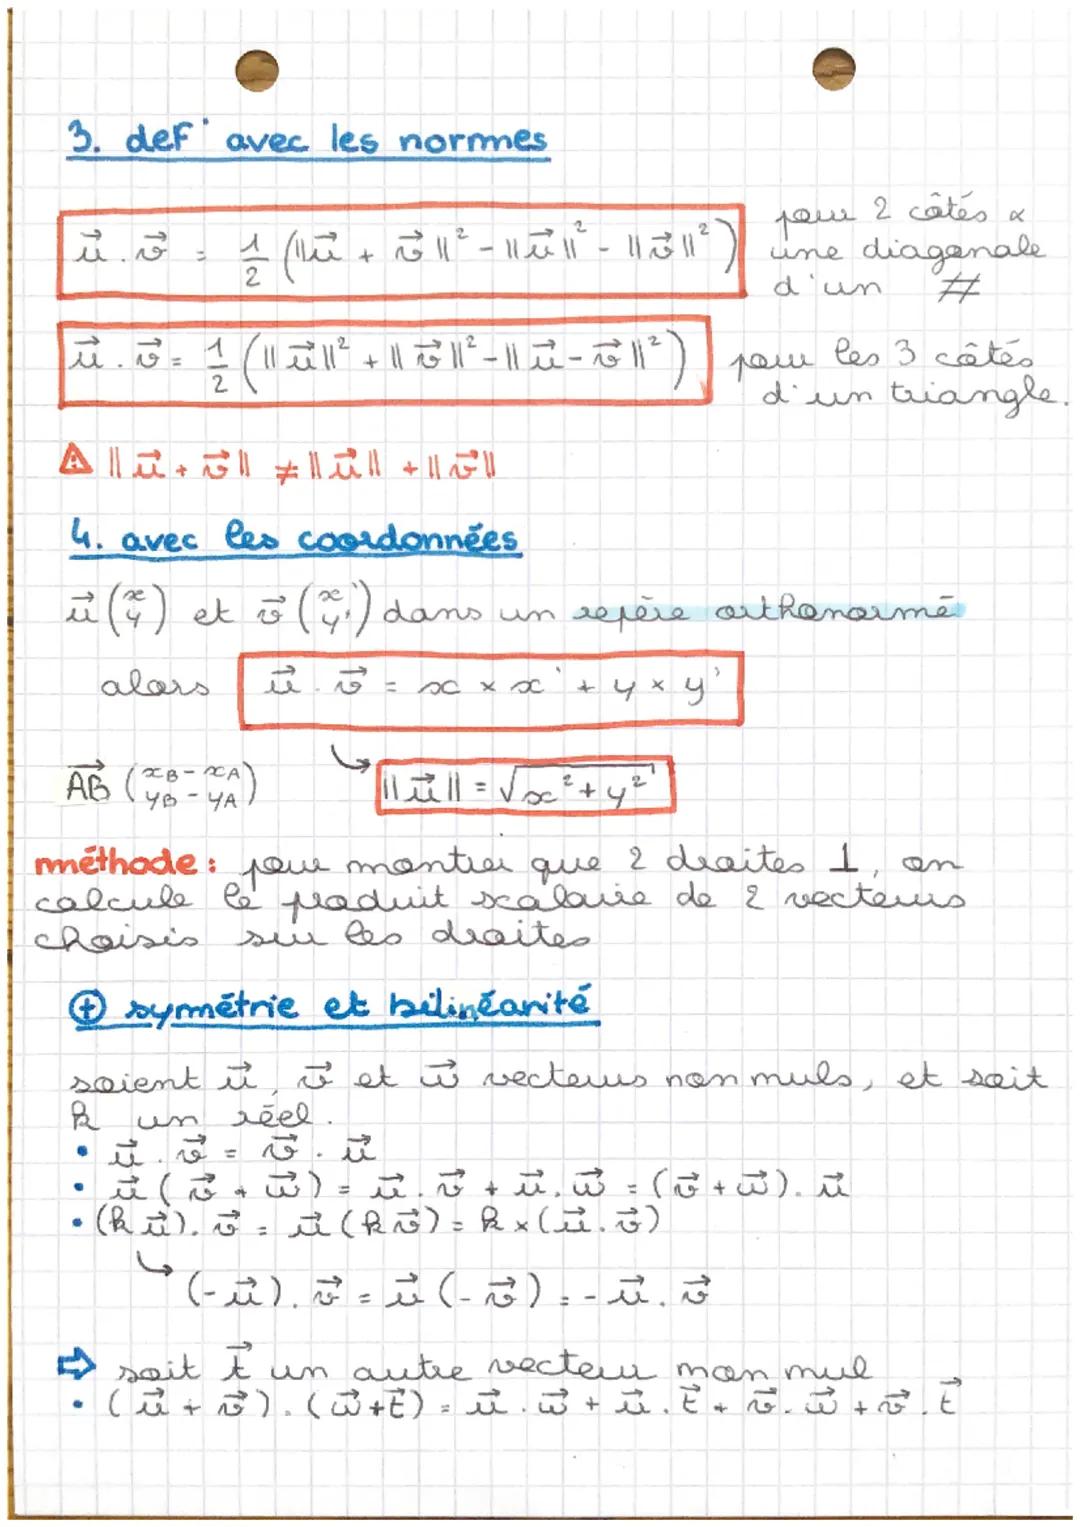 3. def° avec les normes
u⃗ . v⃗ = 1/2 (||u⃗ + v⃗||² - ||u⃗||² - ||v⃗||²) pour 2 côtés &
une diagonale
d'un #
u⃗ . v⃗ = 1/2 (||u⃗||² + ||v⃗||² - ||u⃗ - v⃗||²) pour les 3 côtés
d'un triangle.
⚠ ||u⃗ + v⃗|| ≠ ||u⃗|| + ||v⃗||
4. avec les coordonnées
u⃗ (x y) et v⃗ (x' y') dans un repère orthonormé
alors u⃗ . v⃗ = x × x' + y × y'
AB⃗ (xB - xA yB - yA) ↳ ||u⃗|| = √x² + y²
méthode : pour montrer que 2 droites ⊥, on
calcule le produit scalaire de 2 vecteurs
choisis sur les droites
⊕ symétrie et bilinéarité
soient u⃗, v⃗ et w⃗ vecteurs non nuls, et soit
k un réel.
• u⃗ . v⃗ = v⃗ . u⃗
• u⃗ (v⃗ + w⃗) = u⃗ . v⃗ + u⃗ . w⃗ = (v⃗ + w⃗) . u⃗
• (k u⃗) . v⃗ = u⃗ (k v⃗) = k × (u⃗ . v⃗)
↳ (-u⃗) . v⃗ = u⃗ (-v⃗) = - u⃗ . v⃗
⇨ soit t⃗ un autre vecteur non nul
• (u⃗ + v⃗) . (w⃗ + t⃗) = u⃗ . w⃗ + u⃗ . t⃗ + v⃗ . w⃗ + v⃗ . t⃗